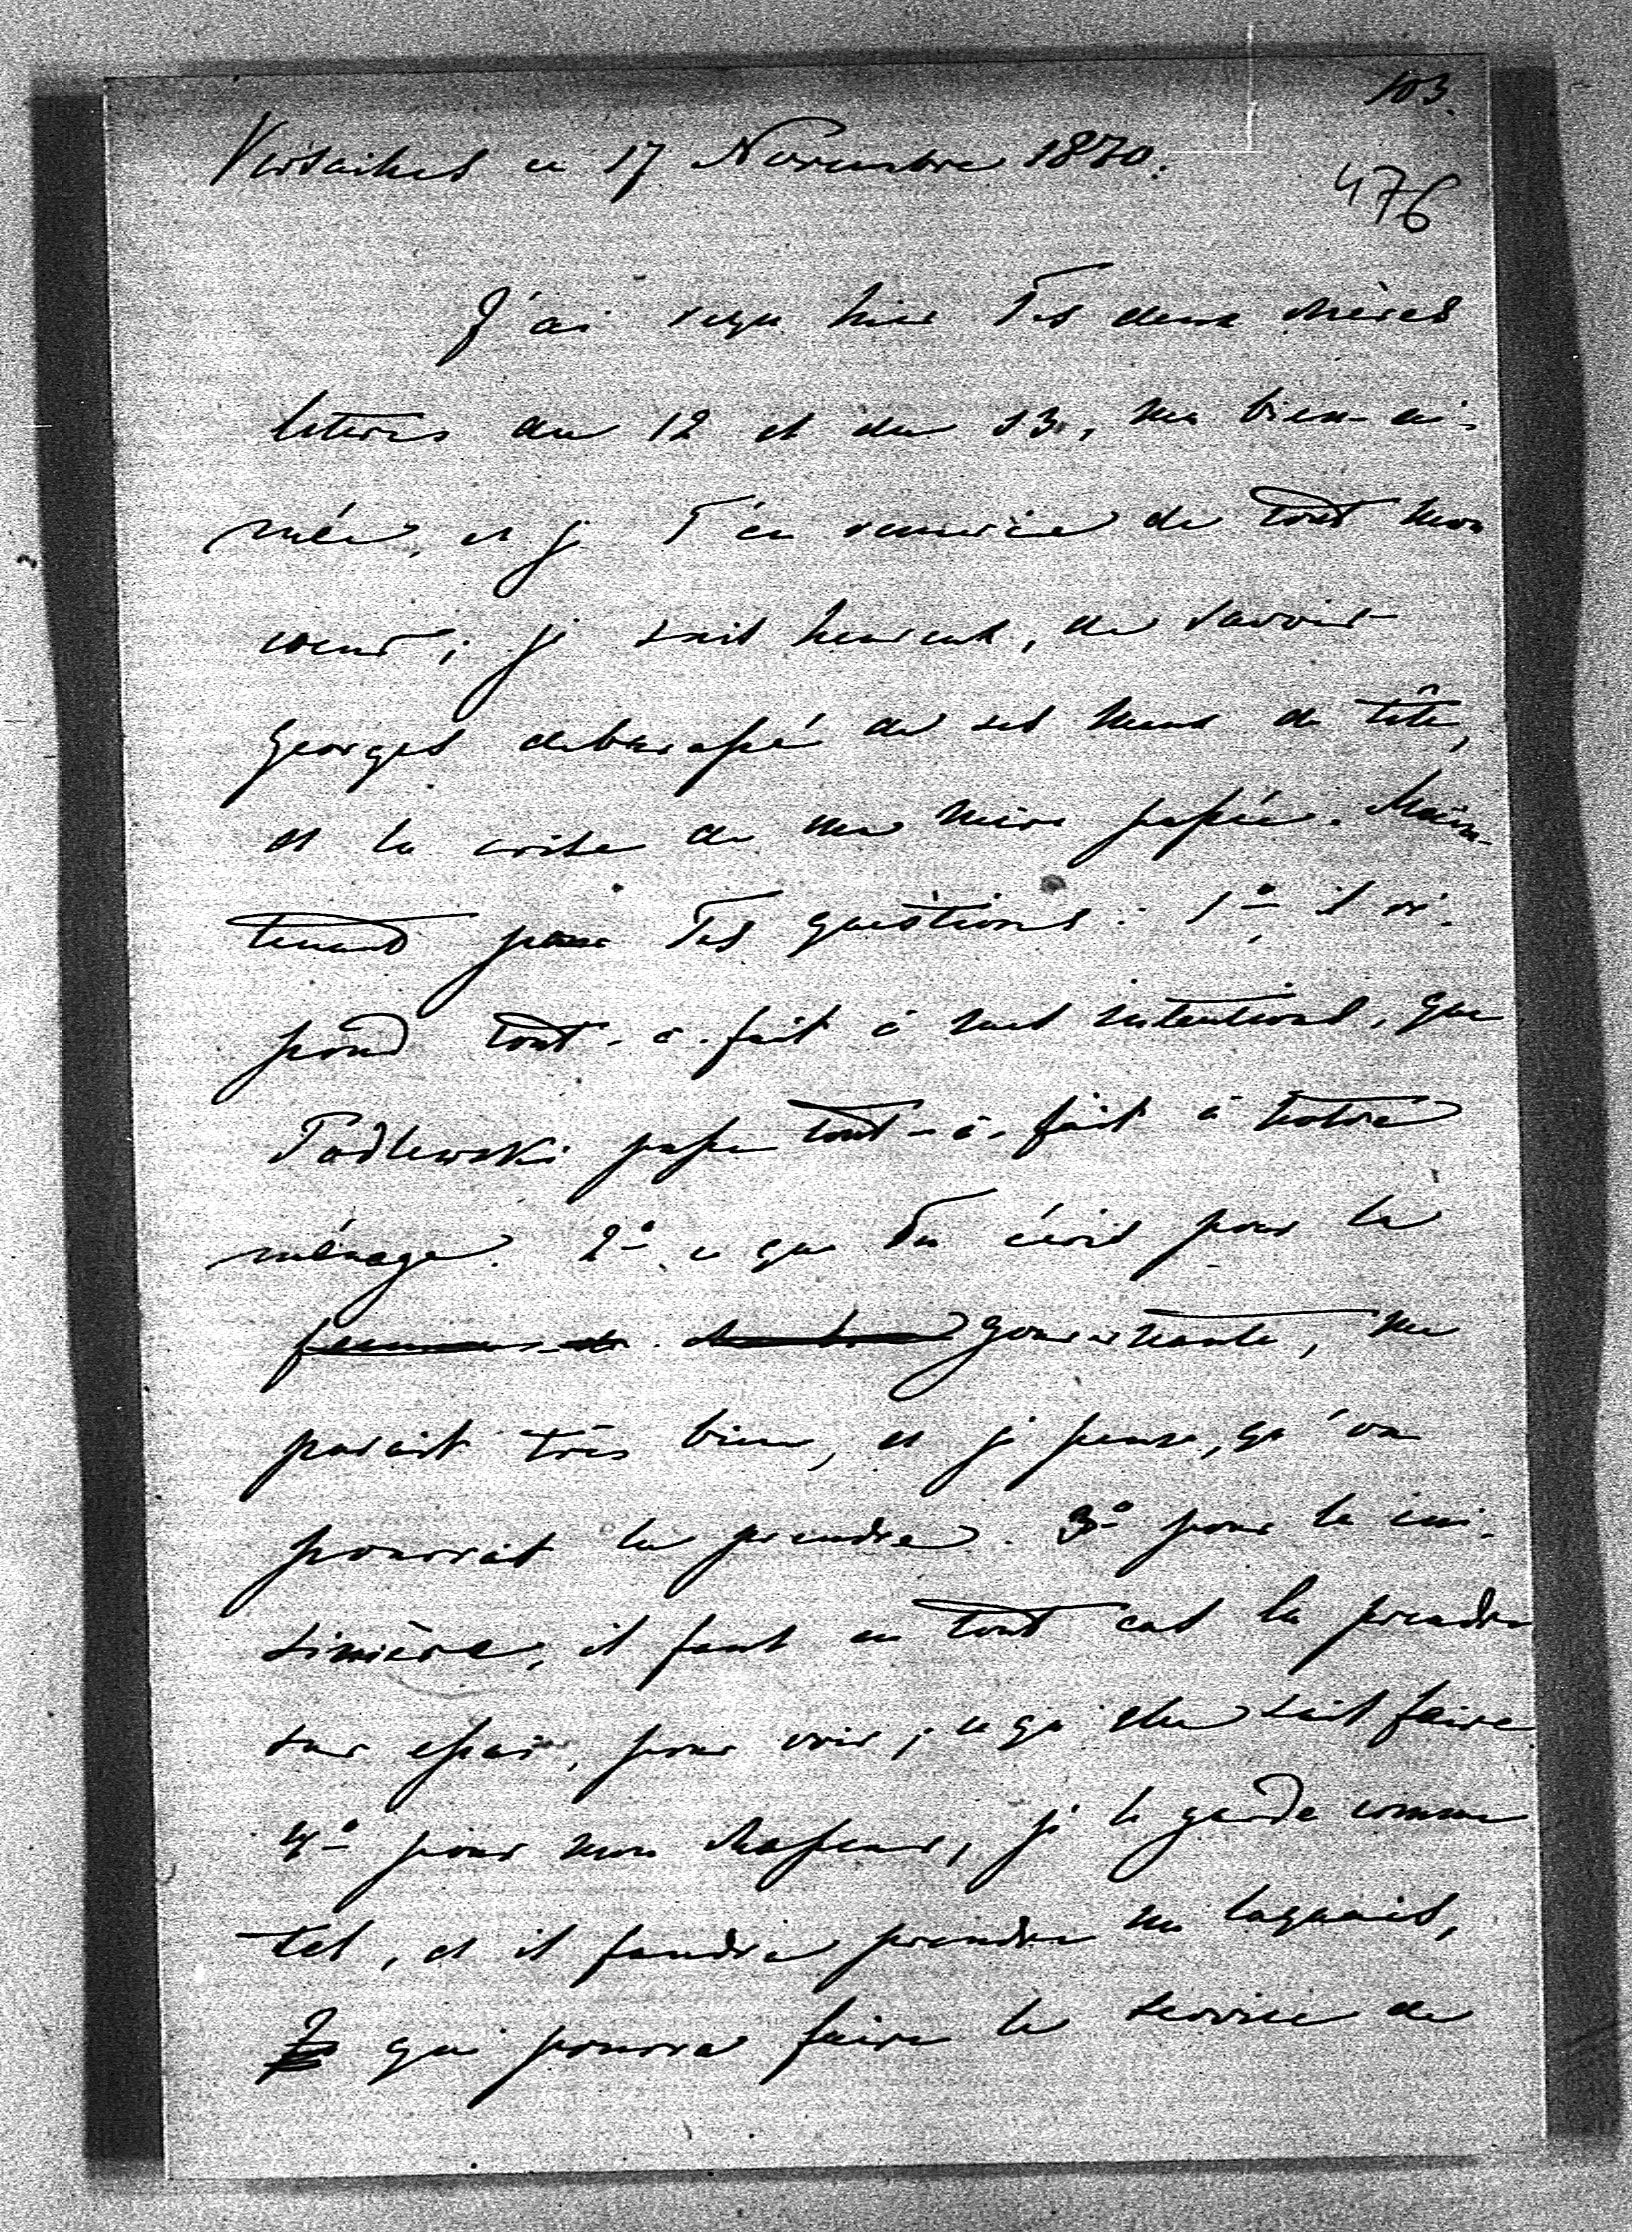 103.
Versailles ce 17 Novembre 1870.
476
J'ai reçu hier Tes deux chères
lettres du 12 et du 13, ma bien-ai-
mée, et je T'en remercie de tout mon
coeur; je suis heureux, de savoir
Georges debarassé de ses maux de tête,
et la crise de ma mère passée. Main-
tenant pour Tes questions: 1º il ré-
pond tout-à-fait à mes intentions, que
Podlewski passe tout-à-fait à notre
ménage. 2º ce que Tu écris pour la
femme de chambre gouvernante, me
parait très bien, et je pense, qu'on
pourrait la prendre. 3º pour la cui-
sinière, il faut en tout cas la prendre
sur essai, pour voir, ce qu'elle sait faire
4º pour mon chasseur, je le garde comme
tel, et il faudra prendre un laquais,
qui pourra faire le service de